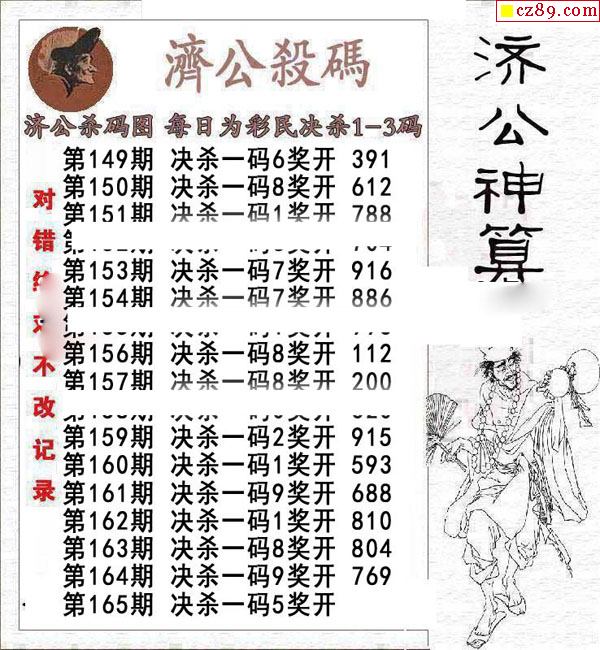 cz89.com
濟公殺碼
济公杀码图 每日为彩民决杀1-3码
第149期 决杀一码6奖开 391
第150期 决杀一码8奖开 612
第151期 决杀一码1奖开 788
第153期 决杀一码7奖开 916
第154期 决杀一码7奖开 886
第156期 决杀一码8奖开 112
第157期 决杀一码8奖开 200
第159期 决杀一码2奖开 915
第160期 决杀一码1奖开 593
第161期 决杀一码9奖开 688
第162期 决杀一码1奖开 810
第163期 决杀一码8奖开 804
第164期 决杀一码9奖开 769
第165期 决杀一码5奖开
对错 不改记录
济公神算